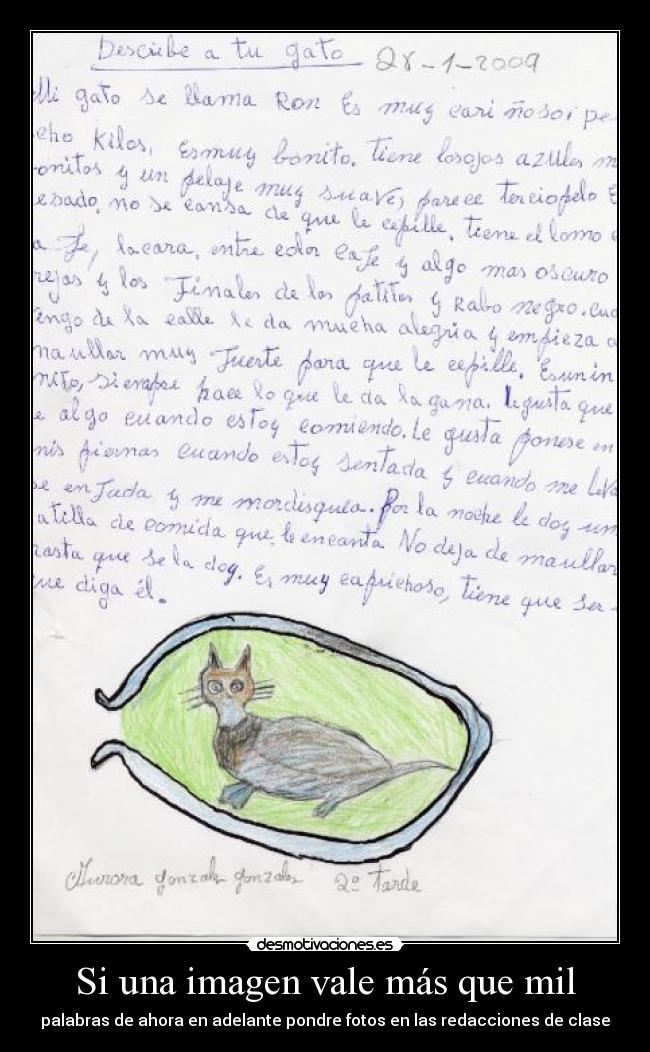 Describe a tu gato 28-1-2009
Mi gato se llama Ron Es muy cari ñoso, pe
cho Kilos, Esmuy bonito. tiene losojos azules m
onitos y un pelaje muy suave, parece terciopelo E
esado, no se cansa de que le cepille. tiene el lomo c
a fe, lacara, entre color Cafe y algo mas oscuro
rejas y los Finales de las patitas y Rabo negro. cua
engo de la calle le da mucha alegria y empieza a
maullar muy Fuerte para que le cepille. Esunin
mito, siempre hace lo que le da la gana. legusta que
e algo cuando estoy comiendo. Le gusta ponese en
mis piernas cuando estoy sentada y cuando me leva
se enfada y me mordisquea. Por la noche le doy una
atilla de comida que le encanta No deja de maullar
hasta que se la doy. Es muy caprichoso, tiene que ser
que diga él.
Aurora gonzalez gonzalez 2º tarde
desmotivaciones.es
Si una imagen vale más que mil
palabras de ahora en adelante pondre fotos en las redacciones de clase